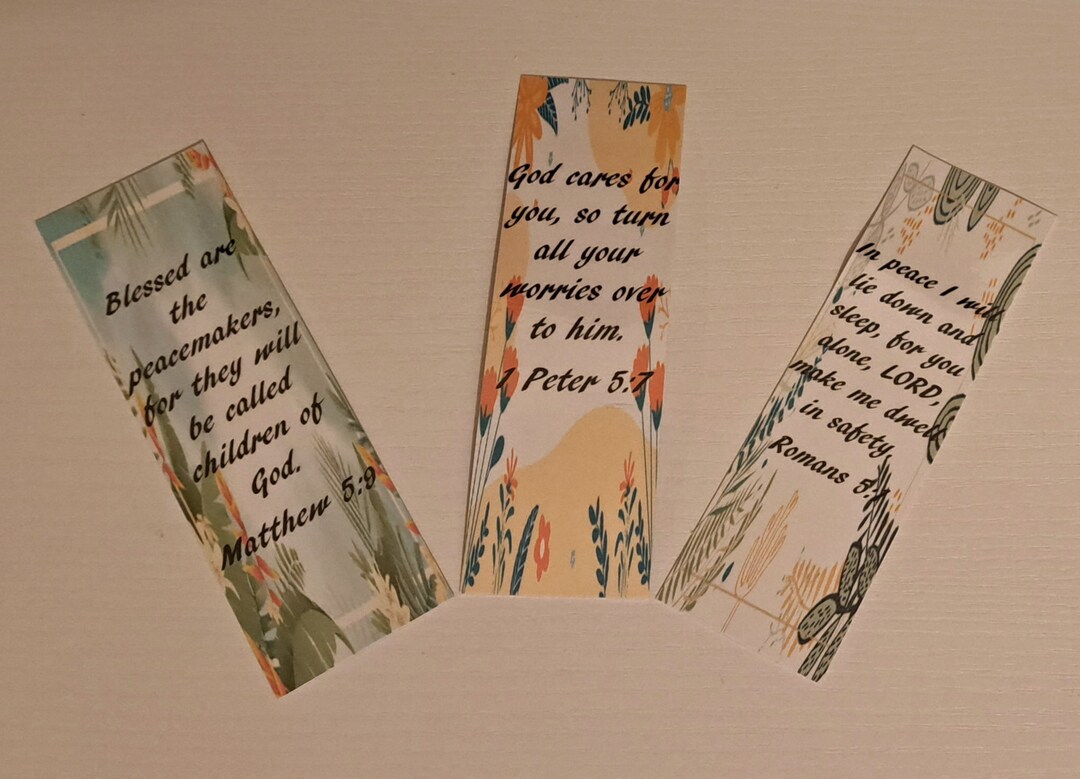 Blessed are
the
peacemakers,
for they will
be called
children of
God.
Matthew 5:9
God cares for
you, so turn
all your
worries over
to him.
1 Peter 5:7
In peace I will
lie down and
sleep, for you
alone, LORD,
make me dwell
in safety
Romans 5:1